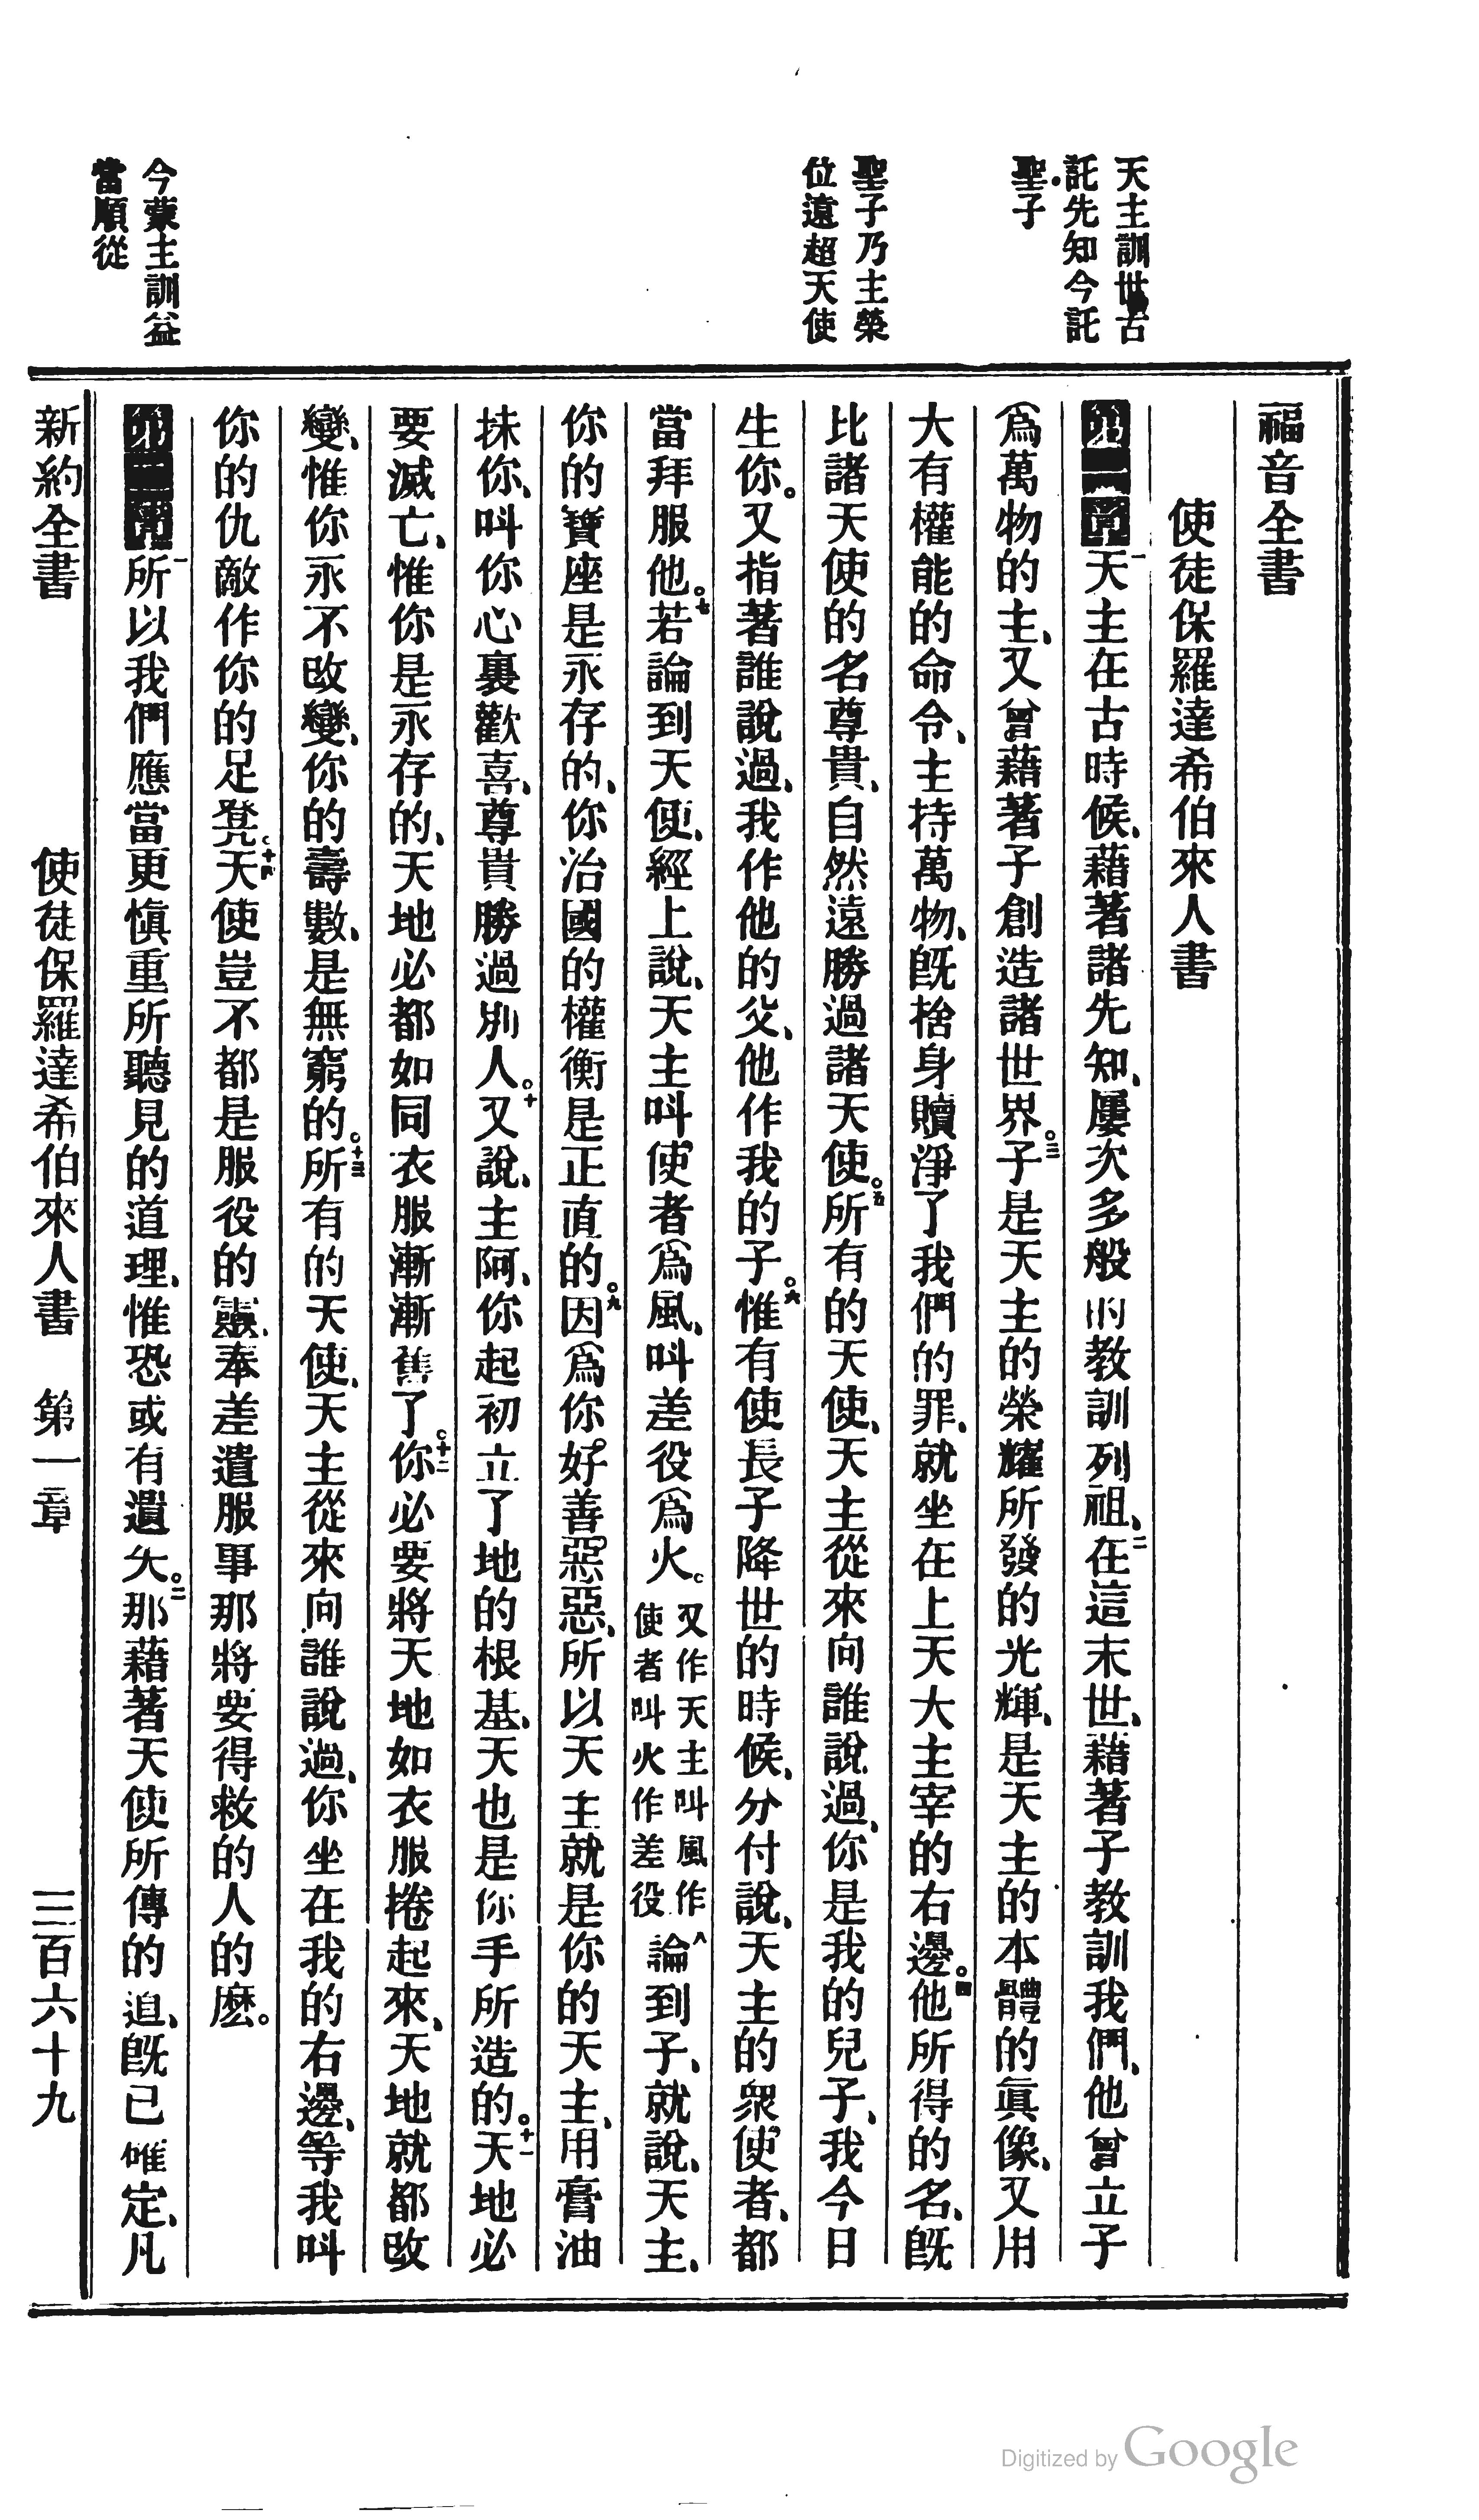 天主訓世古
託先知今託
聖子
聖子乃主榮
位遠超天使
今蒙主訓益
當順從
福音全書
使徒保羅達希伯來人書
第一章一天主在古時候、藉著諸先知、屢次多般的教訓列祖、二在這末世、藉著子教訓我們、他曾立子
爲萬物的主、又曾藉著子創造諸世界。三子是天主的榮耀所發的光輝、是天主的本體的眞像、又用
大有權能的命令、主持萬物、旣捨身贖淨了我們的罪、就坐在上天大主宰的右邊。四他所得的名、旣
比諸天使的名尊貴、自然遠勝過諸天使。五所有的天使、天主從來向誰說過、你是我的兒子、我今日
生你。又指著誰說過、我作他的父、他作我的子。六惟有使長子降世的時候、分付說、天主的衆使者、都
當拜服他。七若論到天使、經上說、天主叫使者爲風、叫差役爲火。又作天主叫風作使者叫火作差役八論到子、就說、天主、
你的寶座是永存的、你治國的權衡是正直的。九因爲你好善惡惡、所以天主就是你的天主、用膏油
抹你、叫你心裏歡喜、尊貴勝過別人。十又說、主阿、你起初立了地的根基、天也是你手所造的。十一天地必
要滅亡、惟你是永存的、天地必都如同衣服漸漸舊了。十二你必要將天地如衣服捲起來、天地就都改
變、惟你永不改變、你的壽數、是無窮的。十三所有的天使、天主從來向誰說過、你坐在我的右邊、等我叫
你的仇敵作你的足凳。十四天使豈不都是服役的靈、奉差遣服事那將要得救的人的麽。
第二章一所以我們應當更愼重所聽見的道理、惟恐或有遺失。二那藉著天使所傳的道、旣已確定、凡
新約全書　使徒保羅達希伯來人書　第一章　三百六十九
Digitized by Google